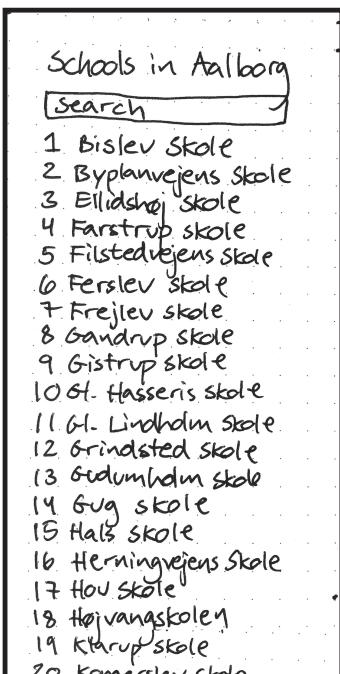 Schools in Aalborg
search
1 Bislev skole
2 Byplanvejens skole
3 Ellidshøj skole
4 Farstrup skole
5 Filstedvejens skole
6 Ferslev skole
7 Frejlev skole
8 Gandrup skole
9 Gistrup skole
10 Gl. Hasseris skole
11 Gl. Lindholm skole
12 Grindsted skole
13 Gudumholm skole
14 Gug skole
15 Hals skole
16 Herningvejens skole
17 Hou skole
18 Højvangskolen
19 Klarup skole
20 skole